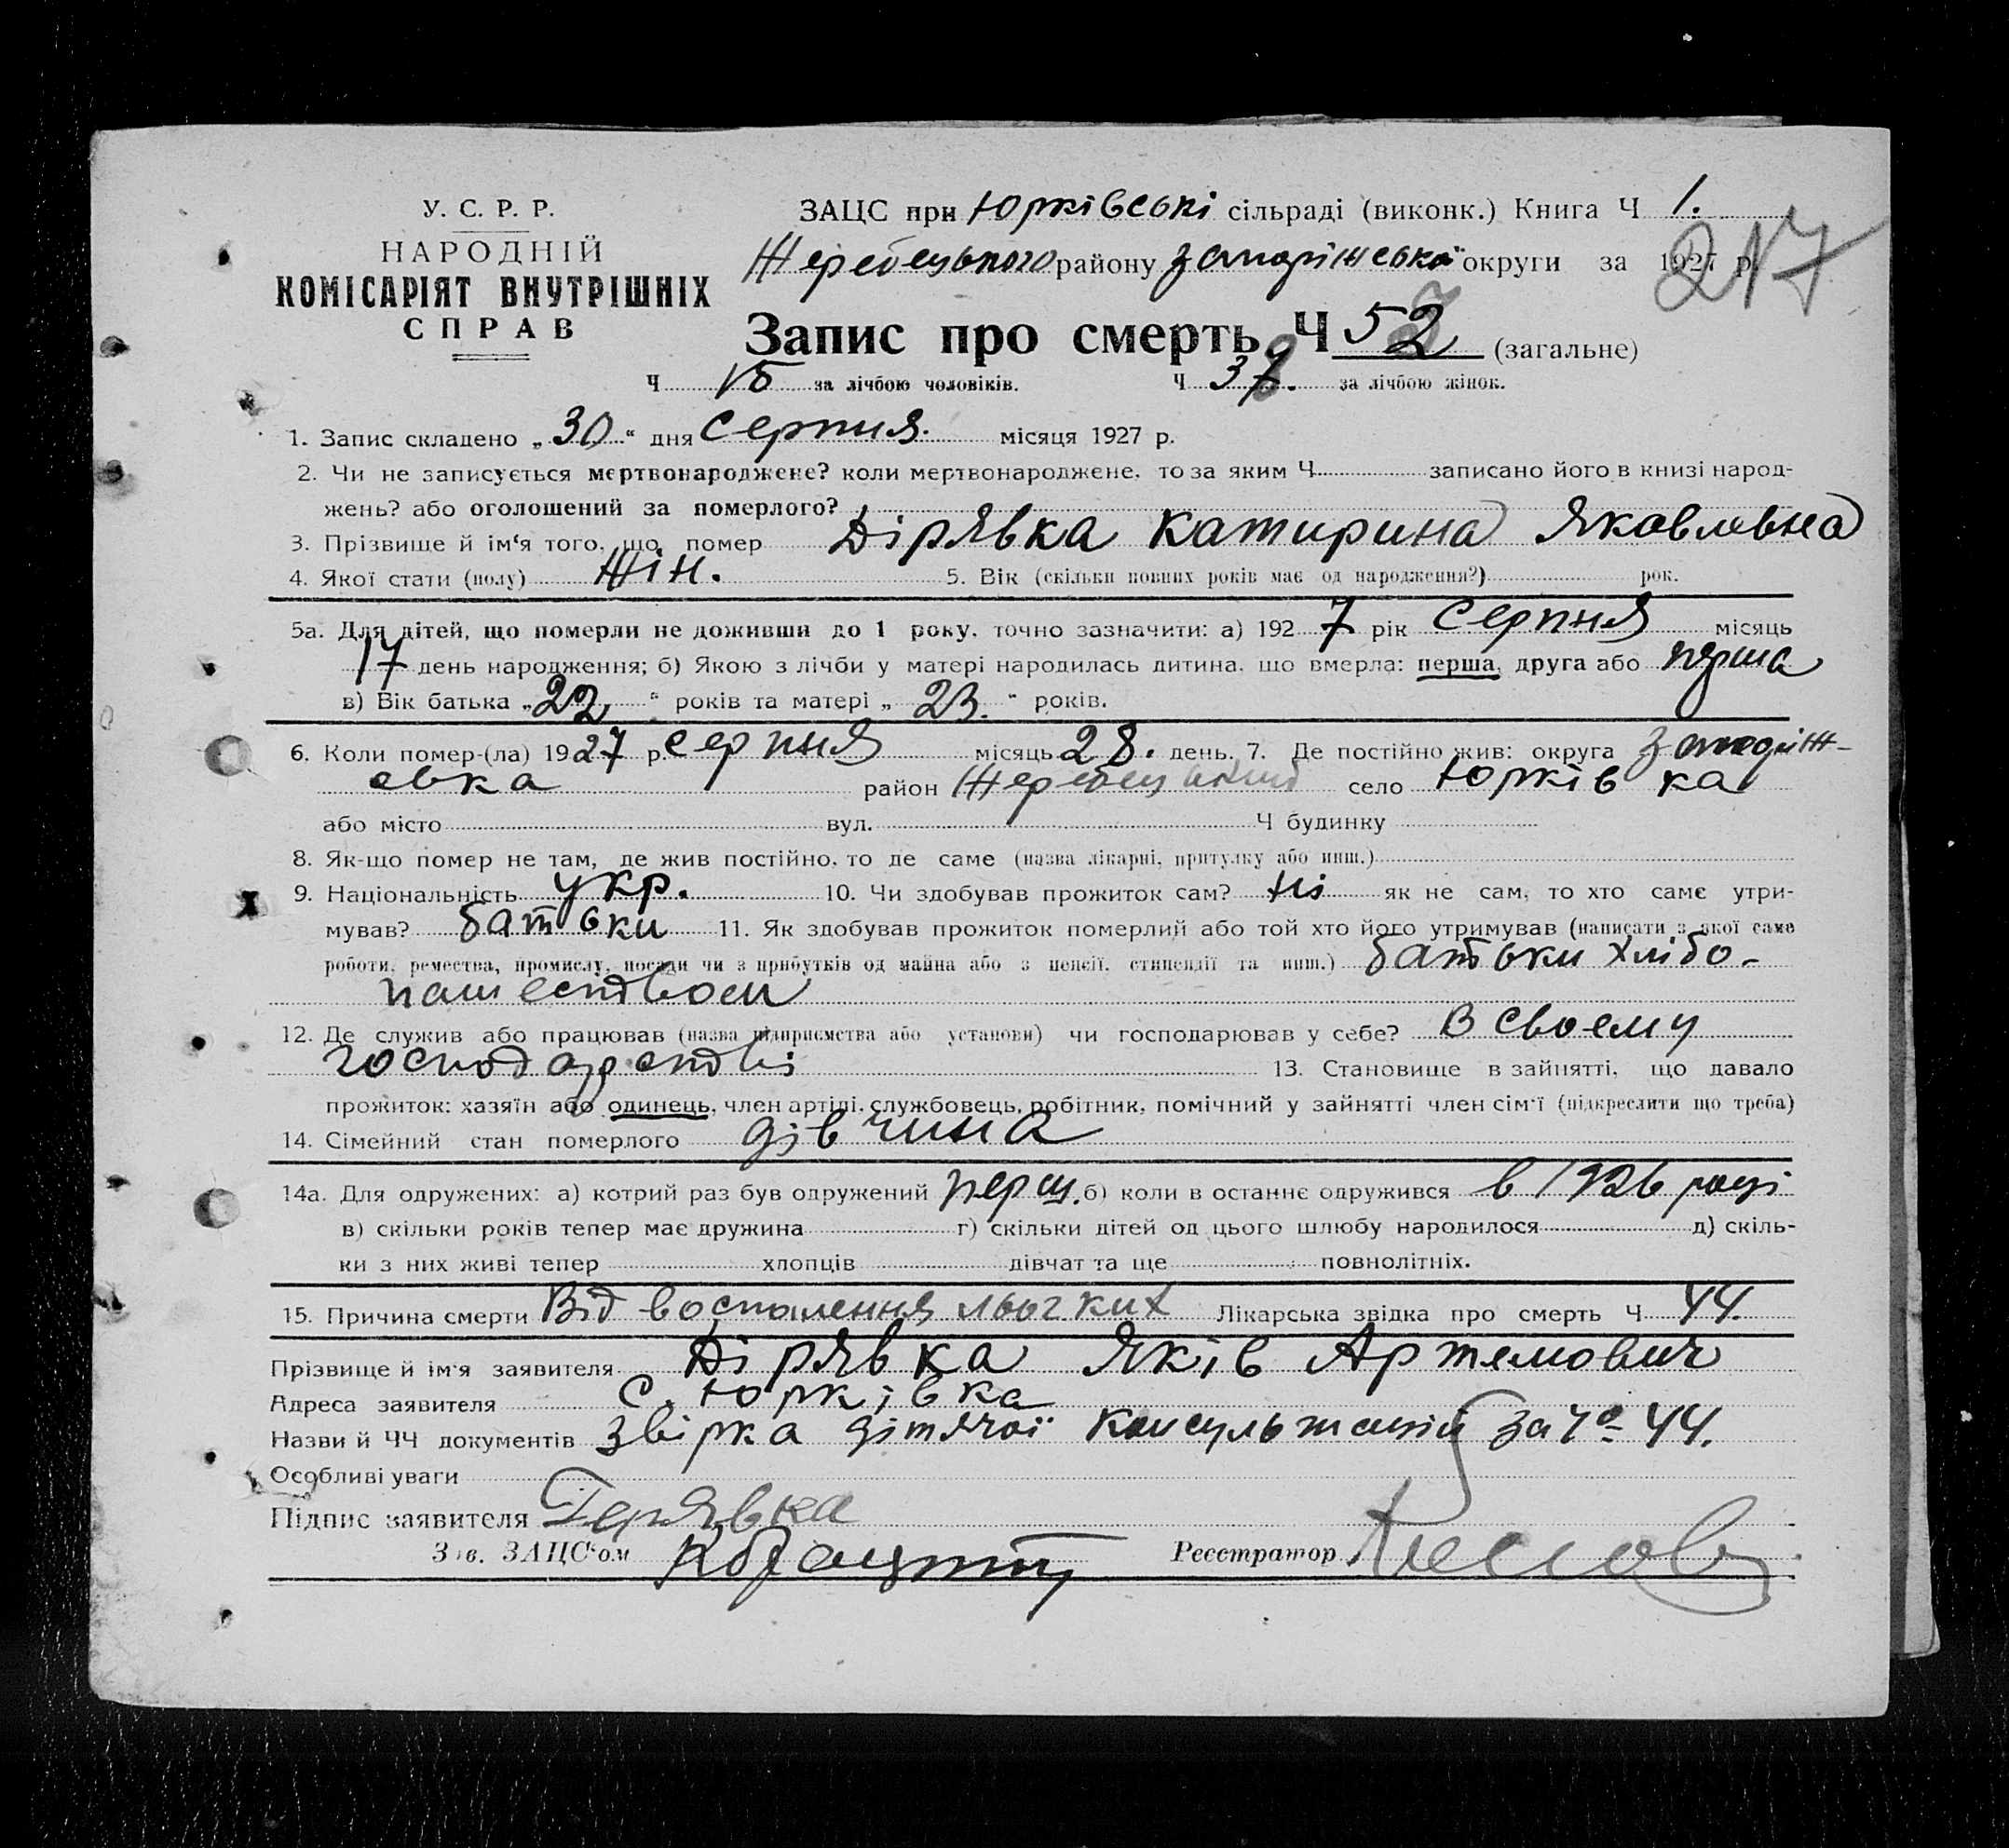 У. С. Р. Р.
НАРОДНІЙ
КОМІСАРІЯТ ВНУТРІШНІХ
СПРАВ
ЗАЦС при Юрківські сільраді (виконк.) Книга Ч 1.
Жеребецького району Запоріжської округи за 1927 р.
217
Запис про смерть Ч 52 (загальне)
Ч 15 за лічбою чоловіків. Ч 37. за лічбою жінок.
1. Запис складено „30“ дня серпня. місяця 1927 р.
2. Чи не записується мертвонароджене? коли мертвонароджене, то за яким Ч записано його в книзі народ-
жень? або оголошений за померлого?
3. Прізвище й ім‘я того, що помер Дірявка Катирина Яковлевна
4. Якої стати (полу) Жін. 5. Вік (скільки повних років має од народження?) рок.
5а. Для дітей, що померли не доживши до 1 року, точно зазначити: а) 1927 рік серпня місяць
17 день народження; б) Якою з лічби у матері народилась дитина, що вмерла: перша, друга або перша
в) Вік батька „22“ років та матері „23.“ років.
6. Коли помер-(ла) 1927 р. серпня місяць 28. день. 7. Де постійно жив: округа Запоріж-
ська район Жеребецький село Юрківка
або місто вул. Ч будинку
8. Як-що помер не там, де жив постійно, то де саме (назва лікарні, притулку або инш.)
9. Національність укр. 10. Чи здобував прожиток сам? Ні як не сам, то хто саме утри-
мував? батьки 11. Як здобував прожиток померлий або той хто його утримував (написати з якої саме
роботи, ремества, промислу, посади чи з прибутків од майна або з пенсії, стипендії та инш.) батьки хлібо-
пашеством
12. Де служив або працював (назва підприємства або установи) чи господарював у себе? В своему
господарстві 13. Становище в зайнятті, що давало
прожиток: хазяїн або одинець, член артілі, службовець, робітник, помічний у зайнятті член сім‘ї (підкреслити що треба)
14. Сімейний стан померлого дівчина
14а. Для одружених: а) котрий раз був одружений перш. б) коли в останнє одружився в 1926 році
в) скільки років тепер має дружина г) скільки дітей од цього шлюбу народилося д) скіль-
ки з них живі тепер хлопців дівчат та ще повнолітніх.
15. Причина смерти Від воспалення Лікарська звідка про смерть Ч 44.
Прізвище й ім‘я заявителя Дірявка Яків Артемович
Адреса заявителя С. Юрківка
Назви й ЧЧ документів звірка дітячої консультації за Ч 44.
Особливі уваги
Підпис заявителя Герявка
Зав. ЗАЦС‘ом
Реєстратор